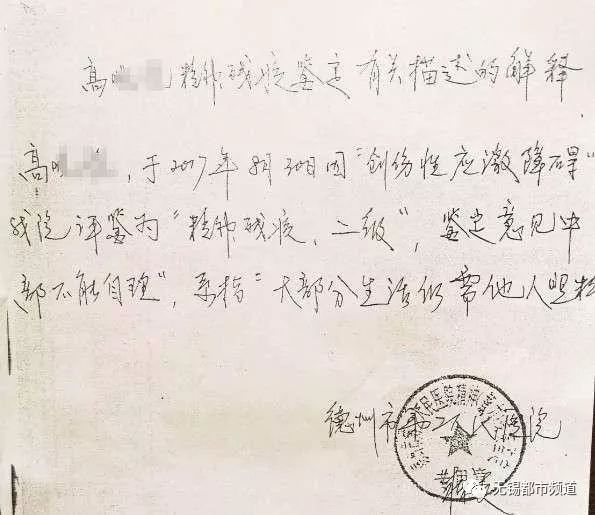 高 精神残疾鉴定有关描述的解释
高 ，于2007年8月30日因"创伤性应激障碍"
我院评鉴为"精神残疾，二级"，鉴定意见中
部不能自理"，系指"大部分生活仍需他人照料
德州市第二人民医院
无锡都市频道